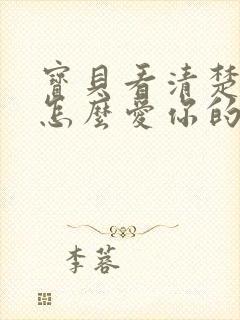 寶貝看清楚
怎麼愛你的
李蓉